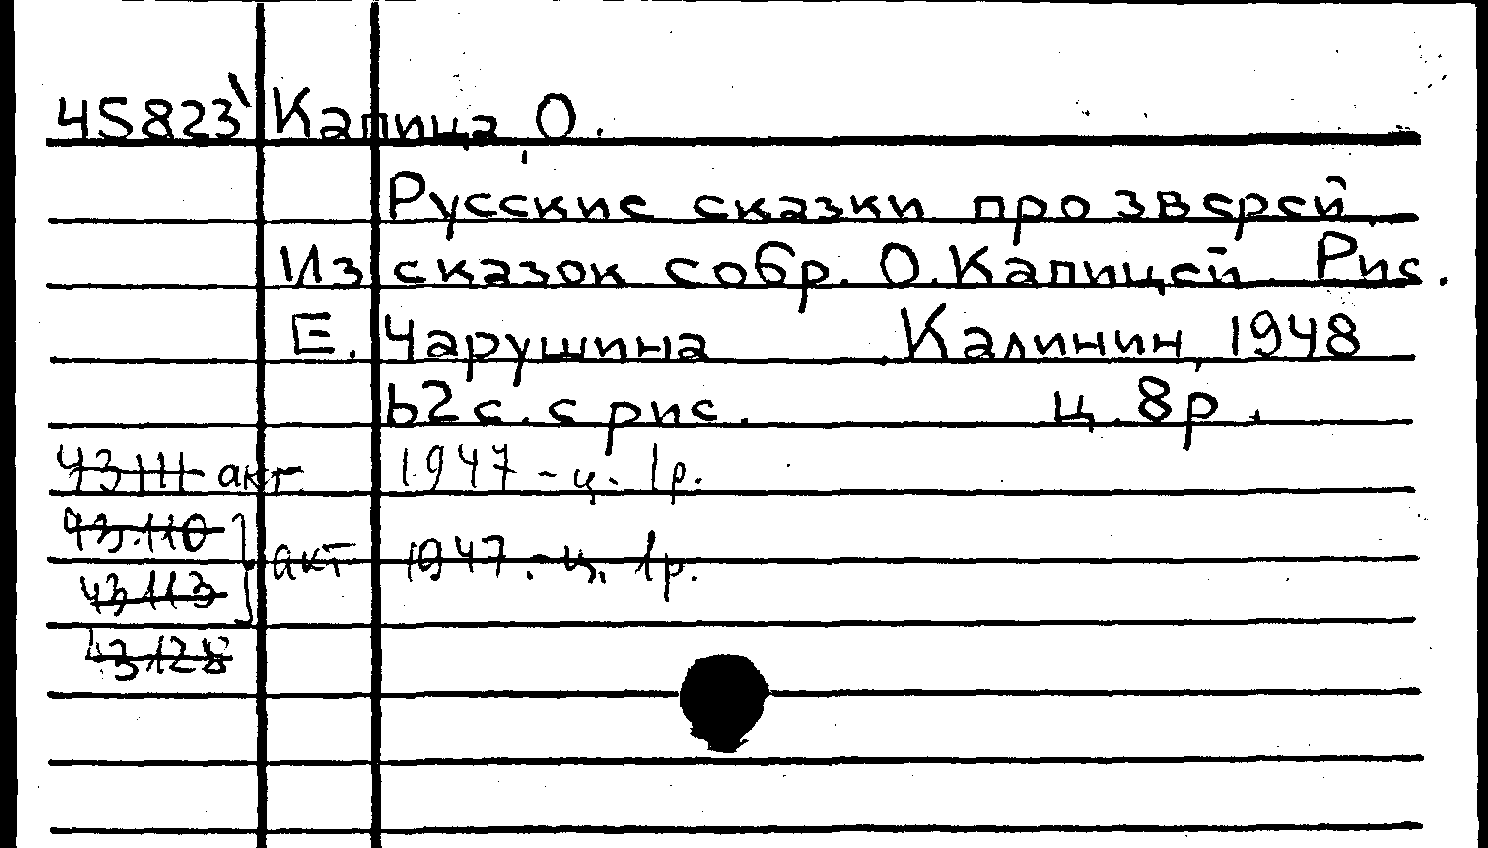 45823 Капица, О.
Русские сказки про зверей.
Из сказок собр. О. Капицей. Рис.
Е. Чарушина. Калинин, 1948
62 с. с рис. ц. 8р.
43111 акт 1947 - ц. 1р.
43.110
акт 1947. - ц. 1р.
43113
43128